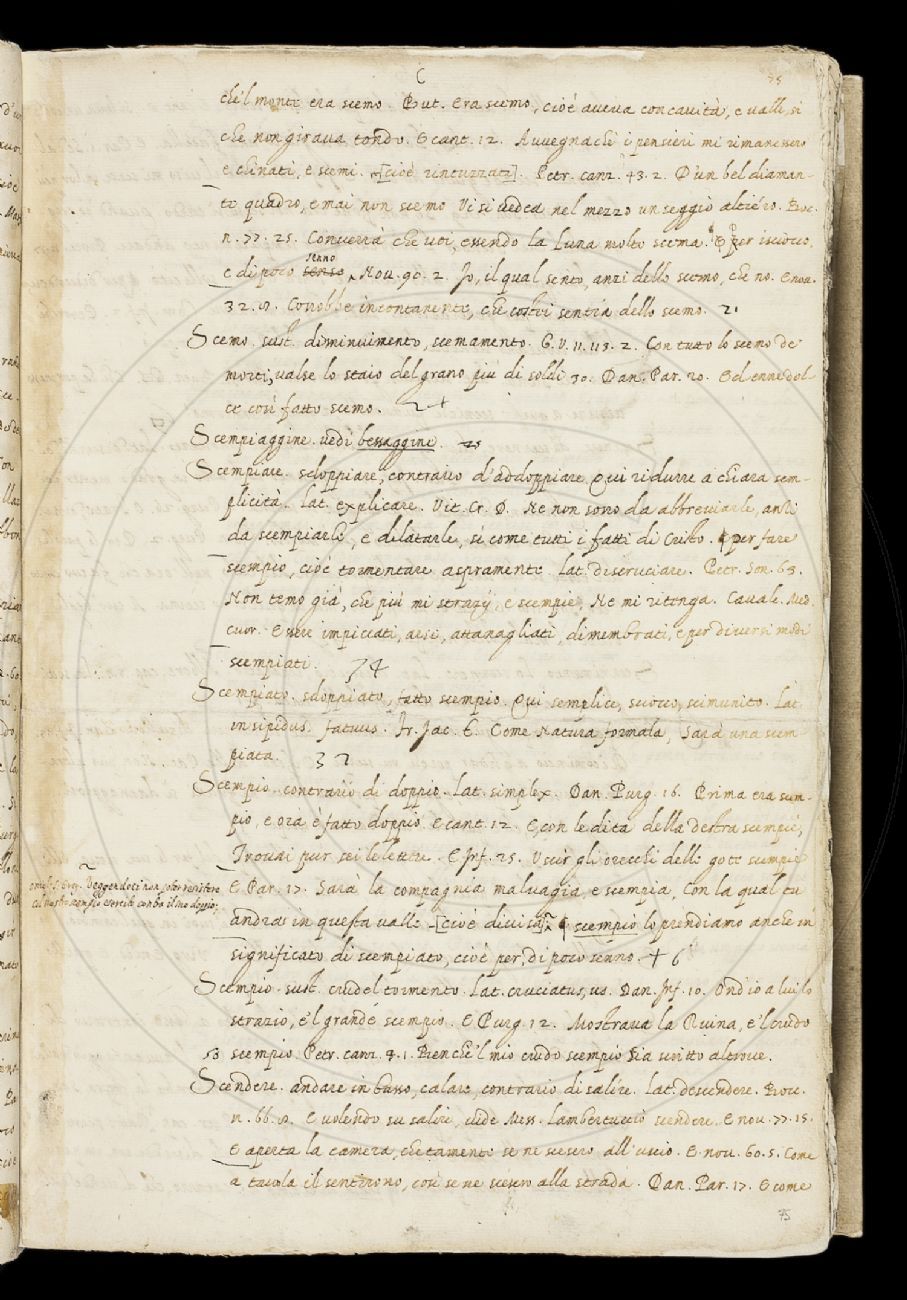 C
75
che'l monte era scemo. But. Era scemo, cioè aveva concavità, e valli, si
che non girava tondo. E cant. 12. Avvegnachè i pensieri mi rimanessero
e chinati, e scemi. [cioè rintuzzati]. Petr. canz. 43. 2. D'un bel diaman-
te quadro, e mai non scemo Vi si vedea nel mezzo un seggio altiero. Boc.
n. 77. 25. Converrà che voi, essendo la luna molto scema. E per isciocco,
senno
e di poco senso, Nov. 90. 2. Io, il qual sento, anzi dello scemo, che no. E nov.
32. 8. Conobbe incontanente, che costei sentia dello scemo. 21
Scemo. sust. diminuimento, scemamento. G. V. 11. 113. 2. Con tutto lo scemo de
morti, valse lo staio del grano piu di soldi 30. Dan. Par. 20. Ed enne dol-
ce così fatto scemo. 2 +
Scempiaggine. vedi bessaggine. 25
Scempiare. sdoppiare, contrario d'addoppiare. Qui ridurre a chiara sem-
plicità. Lat. explicare. Vit. Cr. D. Ne non sono da abbreviarle, anzi
da scempiarle, e dilatarle, si come tutti i fatti di Cristo. per fare
scempio, cioè tormentare aspramente. Lat. discruciare. Petr. Son. 63.
Non temo già, che più mi strazij, e scempie, Ne mi ritenga. Caval. Med.
cuor. Essere impiccati, arsi, attanagliati, dimembrati, e per diversi modi
scempiati. 74
Scempiato. sdoppiato, fatto scempio. Qui semplice, sciocco, scimunito. Lat.
insipidus, fatuus. Fr. Jac. T. Come Natura formala, Sarà una scem-
piata. 32
Scempio. contrario di doppio. Lat. simplex. Dan. Purg. 16. Prima era scem-
pio, e ora è fatto doppio. E cant. 12. E con le dita della destra scempie,
Trovai pur sei le lettere. E Inf. 25. Uscir gli orecchi delle gote scempie
Veggendoci non poter resistere
col nostro scempio esercito contro il suo doppio;
E Par. 17. Sarà la compagnia malvagia, e scempia, Con la qual tu
andrai in questa valle [cioè divisa] scempio lo prendiamo anche in
significato di scempiato, cioè per, di poco senno. + 6
Scempio. sust. crudel tormento. Lat. cruciatus, us. Dan. Inf. 10. Ond'io a lui lo
strazio, e'l grande scempio. E Purg. 12. Mostrava la Ruina, e'l crudo
58 scempio. Petr. canz. 4. 1. Benche'l mio crudo scempio Sia scritto altrove.
Scendere. andare in basso, calare, contrario di salire. Lat. descendere. Bocc.
n. 66. 8. E volendo su salire, vide Mess. Lambertuccio scendere. E nov. 77. 15.
E aperta la camera, chetamente se ne scesero all'uscio. E nov. 60. 5. Come
a tavola il sentirono, così se ne scesero alla strada. Dan. Par. 17. E come
75